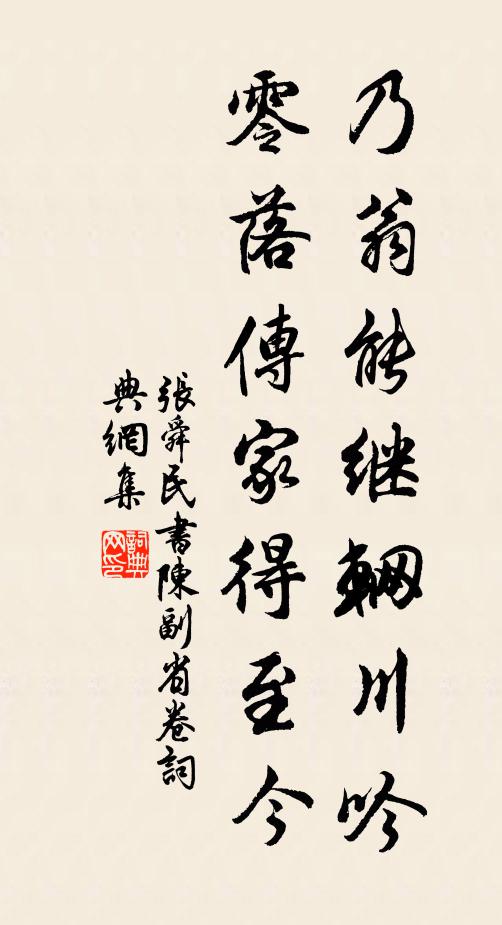 乃翁能继輞川吟
零落傳家得至今
張舜民書陳副省卷詞
典網集
詞典
网印